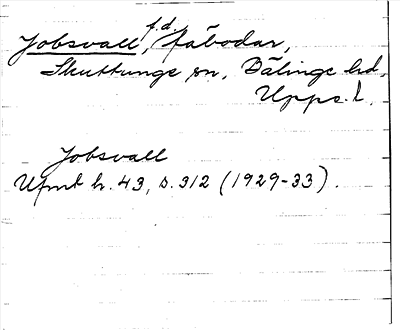 Jobsvall, f.d. fäbodar,
Skuttunge sn, Bälinge hd,
Upps. l.
Jobsvall
Ufmt h. 43, s. 312 (1929-33).